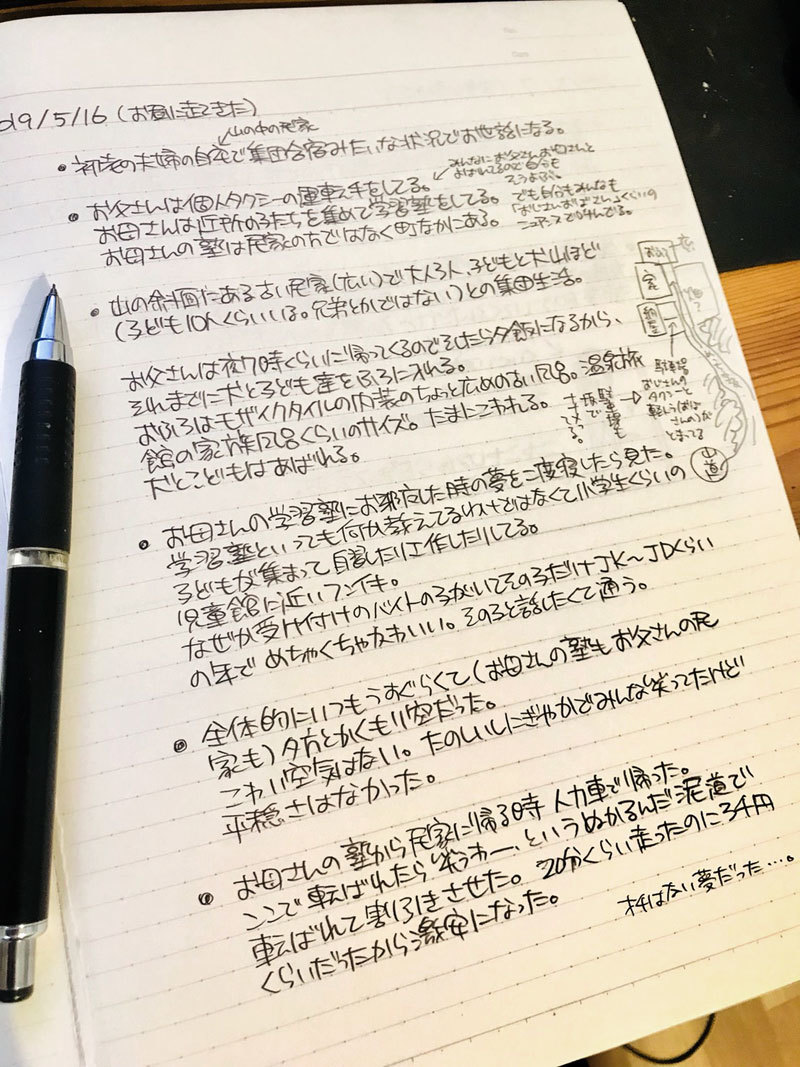 019/5/16 (お昼に走ってきた)
山の中の民家
・初老の夫婦の自宅で集団合宿みたいな状況でお世話になる。
・お父さんは個人タクシーの運転手をしてる。
お母さんは近所の子たちを集めて学習塾をしてる。
お母さんの塾は民家の方ではなく町なかにある。
みんなにお父さんお母さんと
よばれてるので自分も
そうよぶ。
でも自分もみんなも
「おじさんおばさん」くらいの
ニュアンスで呼んでる。
・山の斜面にある古い民家(広い)で大人3人、子どもと犬山ほど
(子ども10人くらいいる。兄弟とかではない)との集団生活。
お父さんは夜7時くらいに帰ってくるのでそしたら夕飯になるから、
それまでに犬と子ども達をふろに入れる。
おふろはモザイクタイルの内装のちょっと広めの古い風呂。温泉旅
館の家族風呂くらいのサイズ。たまにこわれる。
犬とこどもはあばれる。
おふろ
家
納屋
畑?
駐車場
おじさんの
タクシーと
軽トラ(おば
さんの)が
とまってる
駐車場も
坂で
山道
・お母さんの学習塾にお邪魔した時の夢を二度寝したら見た。
学習塾といっても何か教えてるわけではなくて小学生くらいの
子どもが集まって自習したり工作したりしてる。
児童館に近いフンイキ。
なぜか受け付けのバイトの子がいてその子だけJK〜JDくらい
の年で めちゃくちゃかわいい。その子と話したくて通う。
・全体的にいつもうすぐらくて(お母さんの塾もお父さんの民
家も)夕方とかくもり空だった。
こわい空気はない。たのしいしにぎやかでみんな笑ってたけど
平穏さはなかった。
・お母さんの塾から民家に帰る時 人力車で帰った。
ここで転ばれたら笑うわー、というぬかるんだ泥道で
転ばれて割引きさせた。20分くらい走ったのに3千円
くらいだったから激安になった。
オチはない夢だった…。